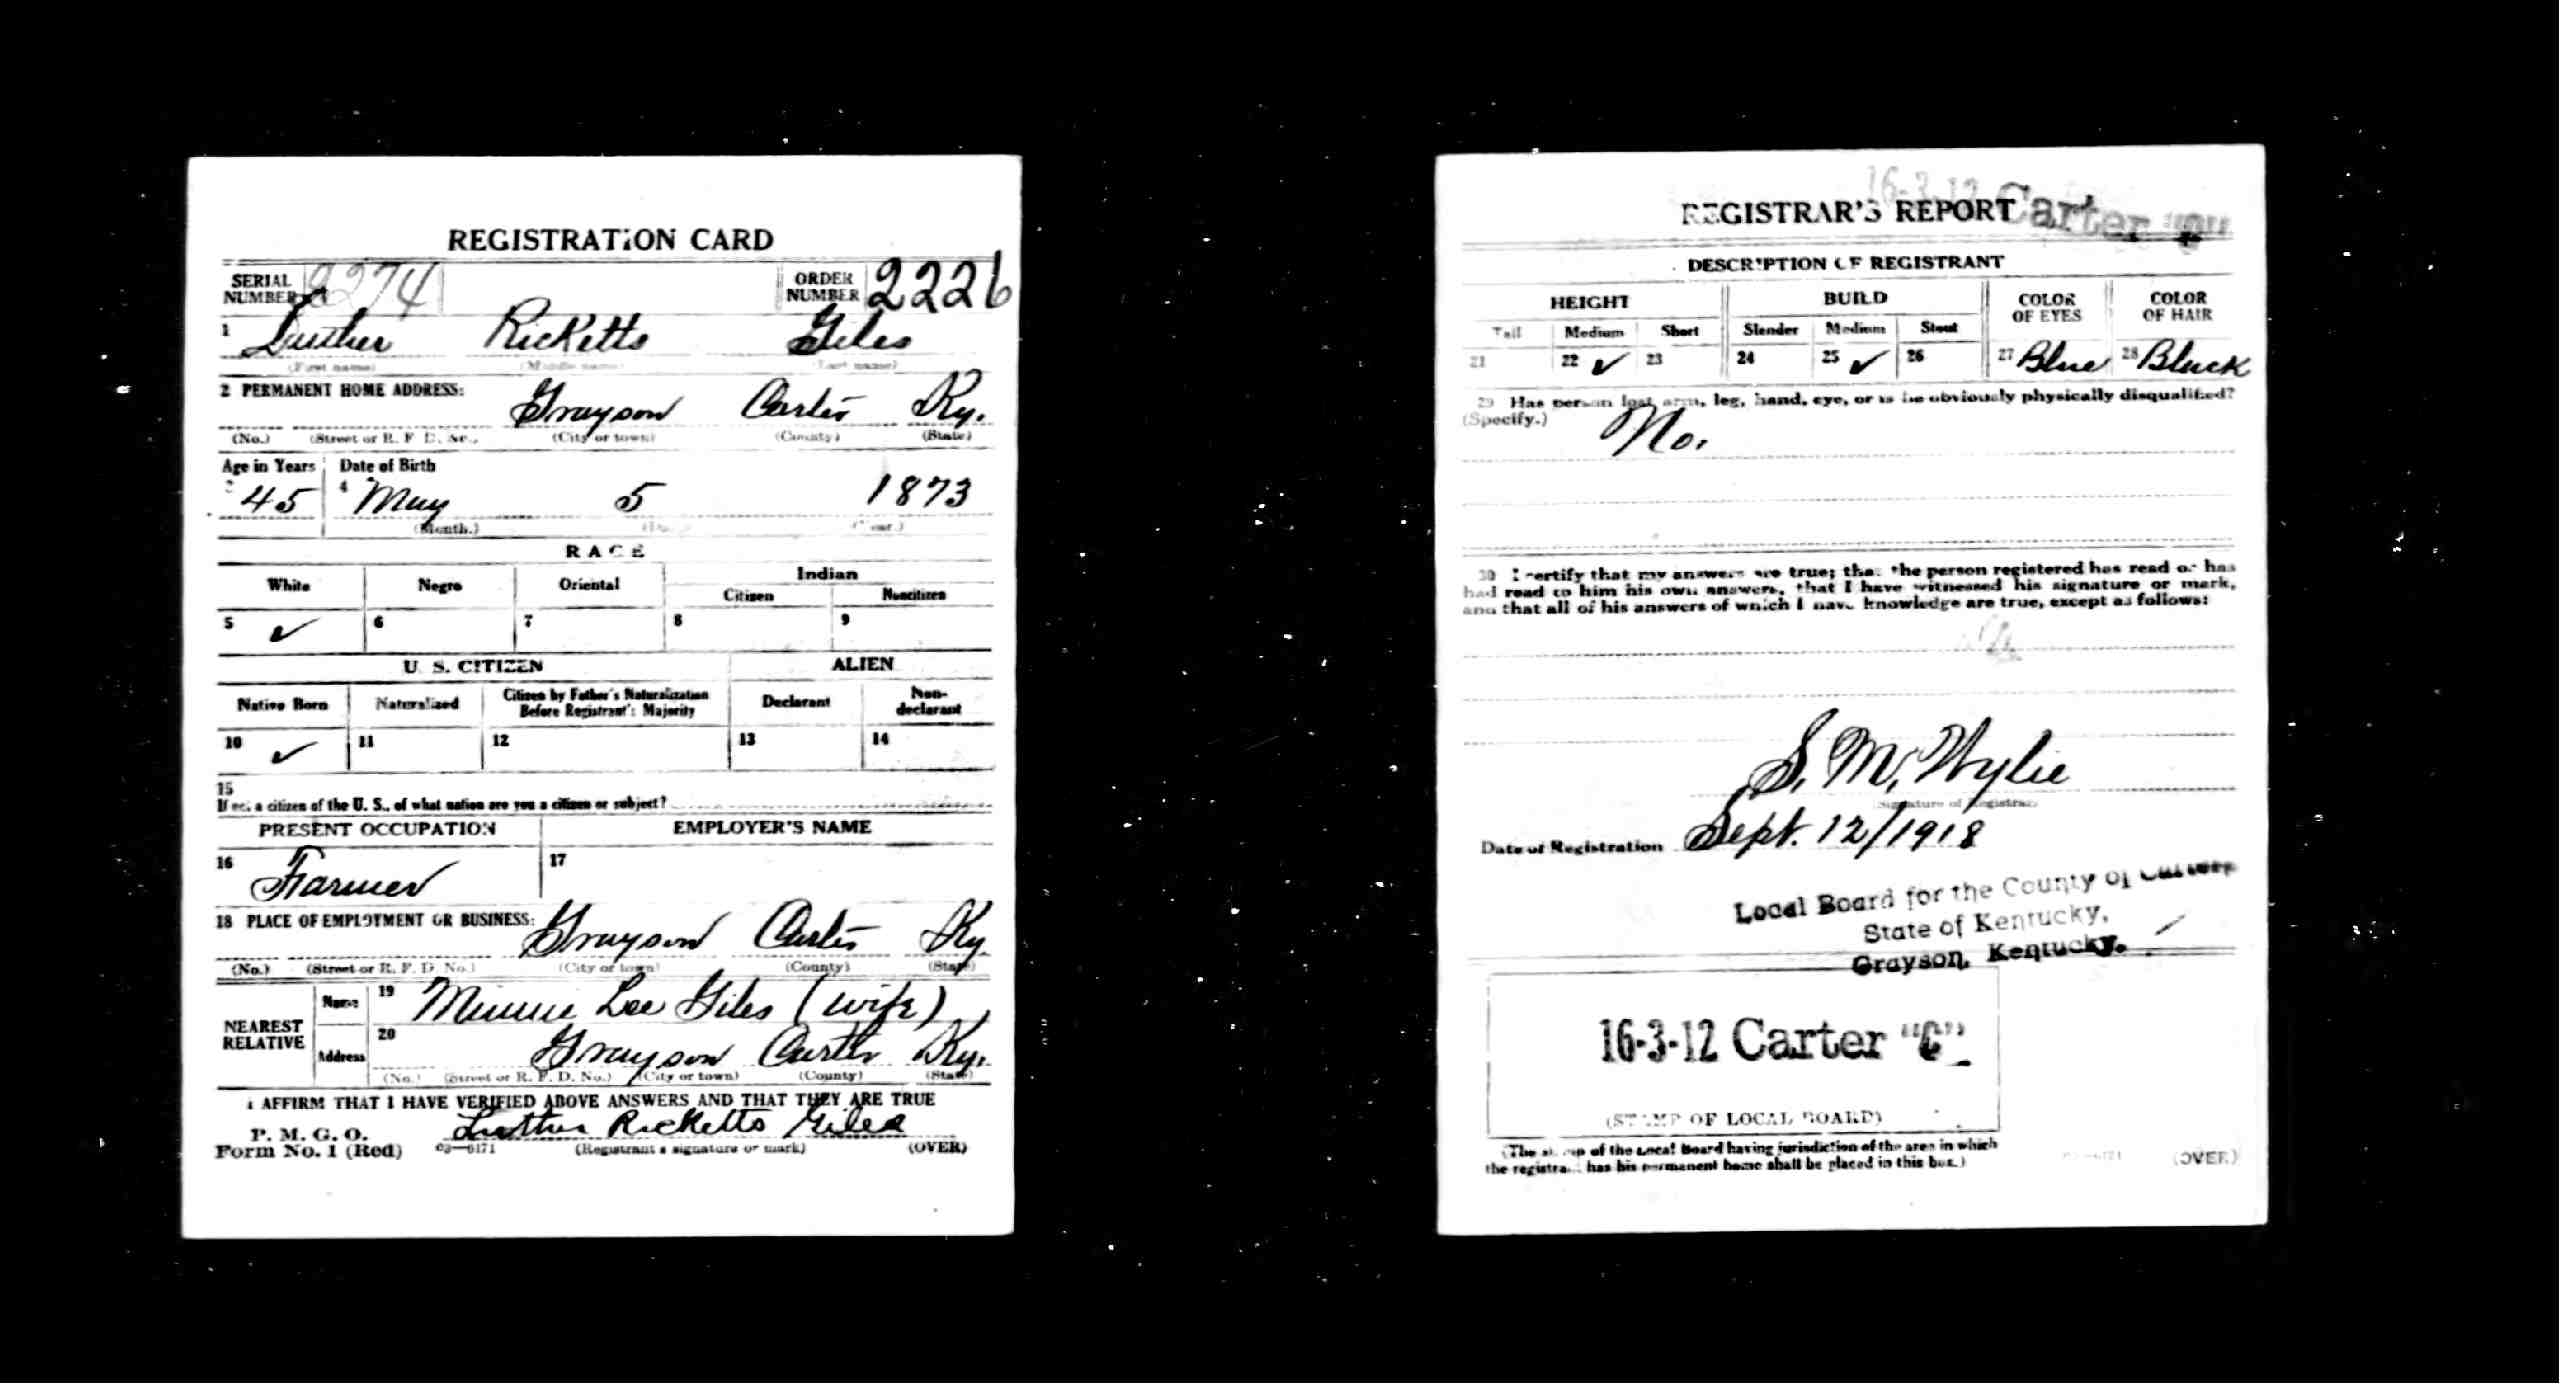 REGISTRATION CARD
SERIAL NUMBER 2274 ORDER NUMBER 2226
1 Luther Ricketts Giles
(First name) (Middle name) (Last name)
2 PERMANENT HOME ADDRESS:
Grayson Carter Ky.
(No.) (Street or R. F. D. No.) (City or town) (County) (State)
Age in Years Date of Birth
3 45 4 May 5 1873
(Month.) (Day.) (Year.)
RACE
White Negro Oriental Indian
Citizen Noncitizen
5 ✓ 6 7 8 9
U. S. CITIZEN ALIEN
Native Born Naturalized Citizen by Father's Naturalization Before Registrant's Majority Declarant Non-declarant
10 ✓ 11 12 13 14
15
If not a citizen of the U. S., of what nation are you a citizen or subject?
PRESENT OCCUPATION EMPLOYER'S NAME
16 Farmer 17
18 PLACE OF EMPLOYMENT OR BUSINESS:
Grayson Carter Ky.
(No.) (Street or R. F. D. No.) (City or town) (County) (State)
NEAREST RELATIVE
Name 19 Minnie Lee Giles (wife)
Address 20 Grayson Carter Ky.
(No.) (Street or R. F. D. No.) (City or town) (County) (State)
I AFFIRM THAT I HAVE VERIFIED ABOVE ANSWERS AND THAT THEY ARE TRUE
P. M. G. O.
Form No. 1 (Red) 03—6171 Luther Ricketts Giles
(Registrant's signature or mark) (OVER)
16-3-12 Carter
REGISTRAR'S REPORT
DESCRIPTION OF REGISTRANT
HEIGHT BUILD COLOR OF EYES COLOR OF HAIR
Tall Medium Short Slender Medium Stout
21 22 ✓ 23 24 25 ✓ 26 27 Blue 28 Black
29 Has person lost arm, leg, hand, eye, or is he obviously physically disqualified?
(Specify.) No.
30 I certify that my answers are true; that the person registered has read or has
had read to him his own answers, that I have witnessed his signature or mark,
and that all of his answers of which I have knowledge are true, except as follows:
S. M. Wylie
(Signature of Registrar)
Date of Registration Sept. 12/1918
Local Board for the County of Carter,
State of Kentucky,
Grayson, Kentucky.
16-3-12 Carter "C"
(STAMP OF LOCAL BOARD)
(The stamp of the Local Board having jurisdiction of the area in which
the registrant has his permanent home shall be placed in this box.)
03—6171 (OVER)